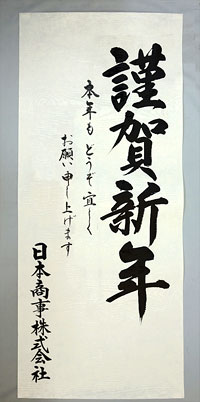 謹賀新年
本年もどうぞ宜しく
お願い申し上げます
日本商事株式会社